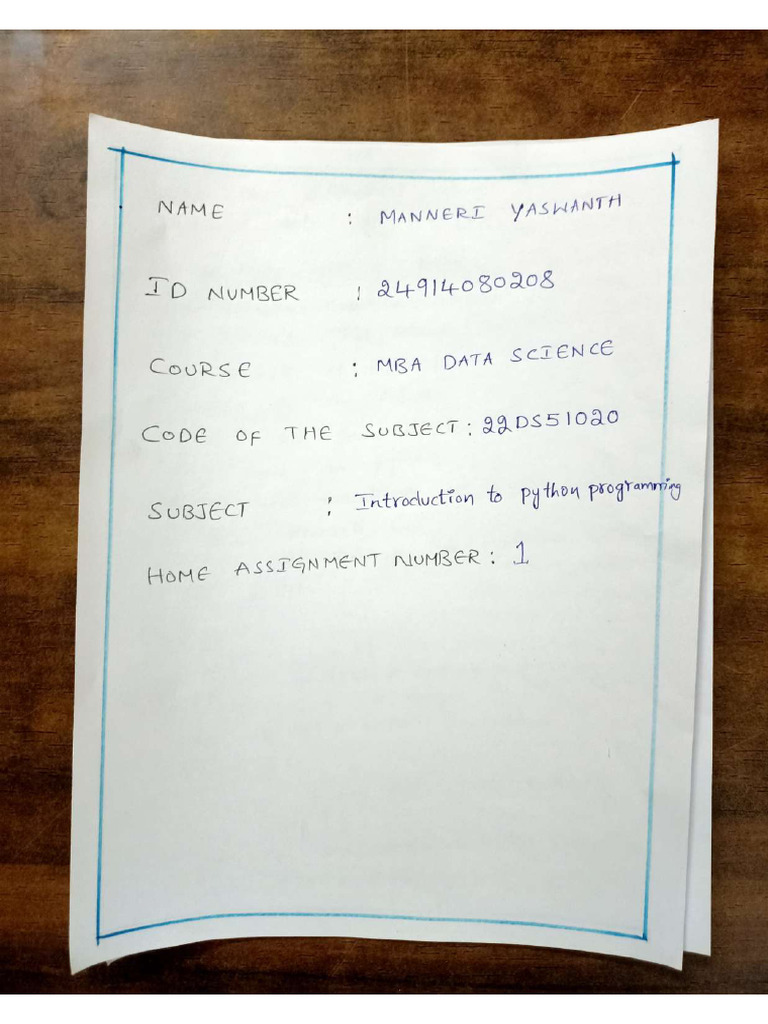 NAME : MANNERI YASWANTH
ID NUMBER : 24914080208
COURSE : MBA DATA SCIENCE
CODE OF THE SUBJECT : 22DS51020
SUBJECT : Introduction to python programming
HOME ASSIGNMENT NUMBER : 1